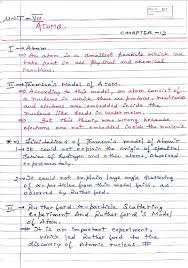 UNIT - VIII
ATOMS.
CHAPTER - 12
I → Atom.
→ An atom is a smallest particle which can
take part in all physical and chemical
reactions.
II → Thomson's Model of Atom.
→ According to this model, an atom consist of
a nucleus in which there are protons neutrons
and electrons are embedded inside the
nucleus.
→ But this theory was wrong because
electrons are not embedded inside the nucleus
*) Limitations of Thomson's model of Atom:
1 → It could not explain the origin of spectral
series of hydrogen and other atoms, observed
experimentally.
2) It could not explain large angle scattering
of α-particles from thin metal foils, as
observed by Rutherford.
III → Rutherford α-particle Scattering
Experiment And Rutherford's Model
of Atom:
It is an important experiment
which led Rutherford to the
discovery of Atomic nucleus.